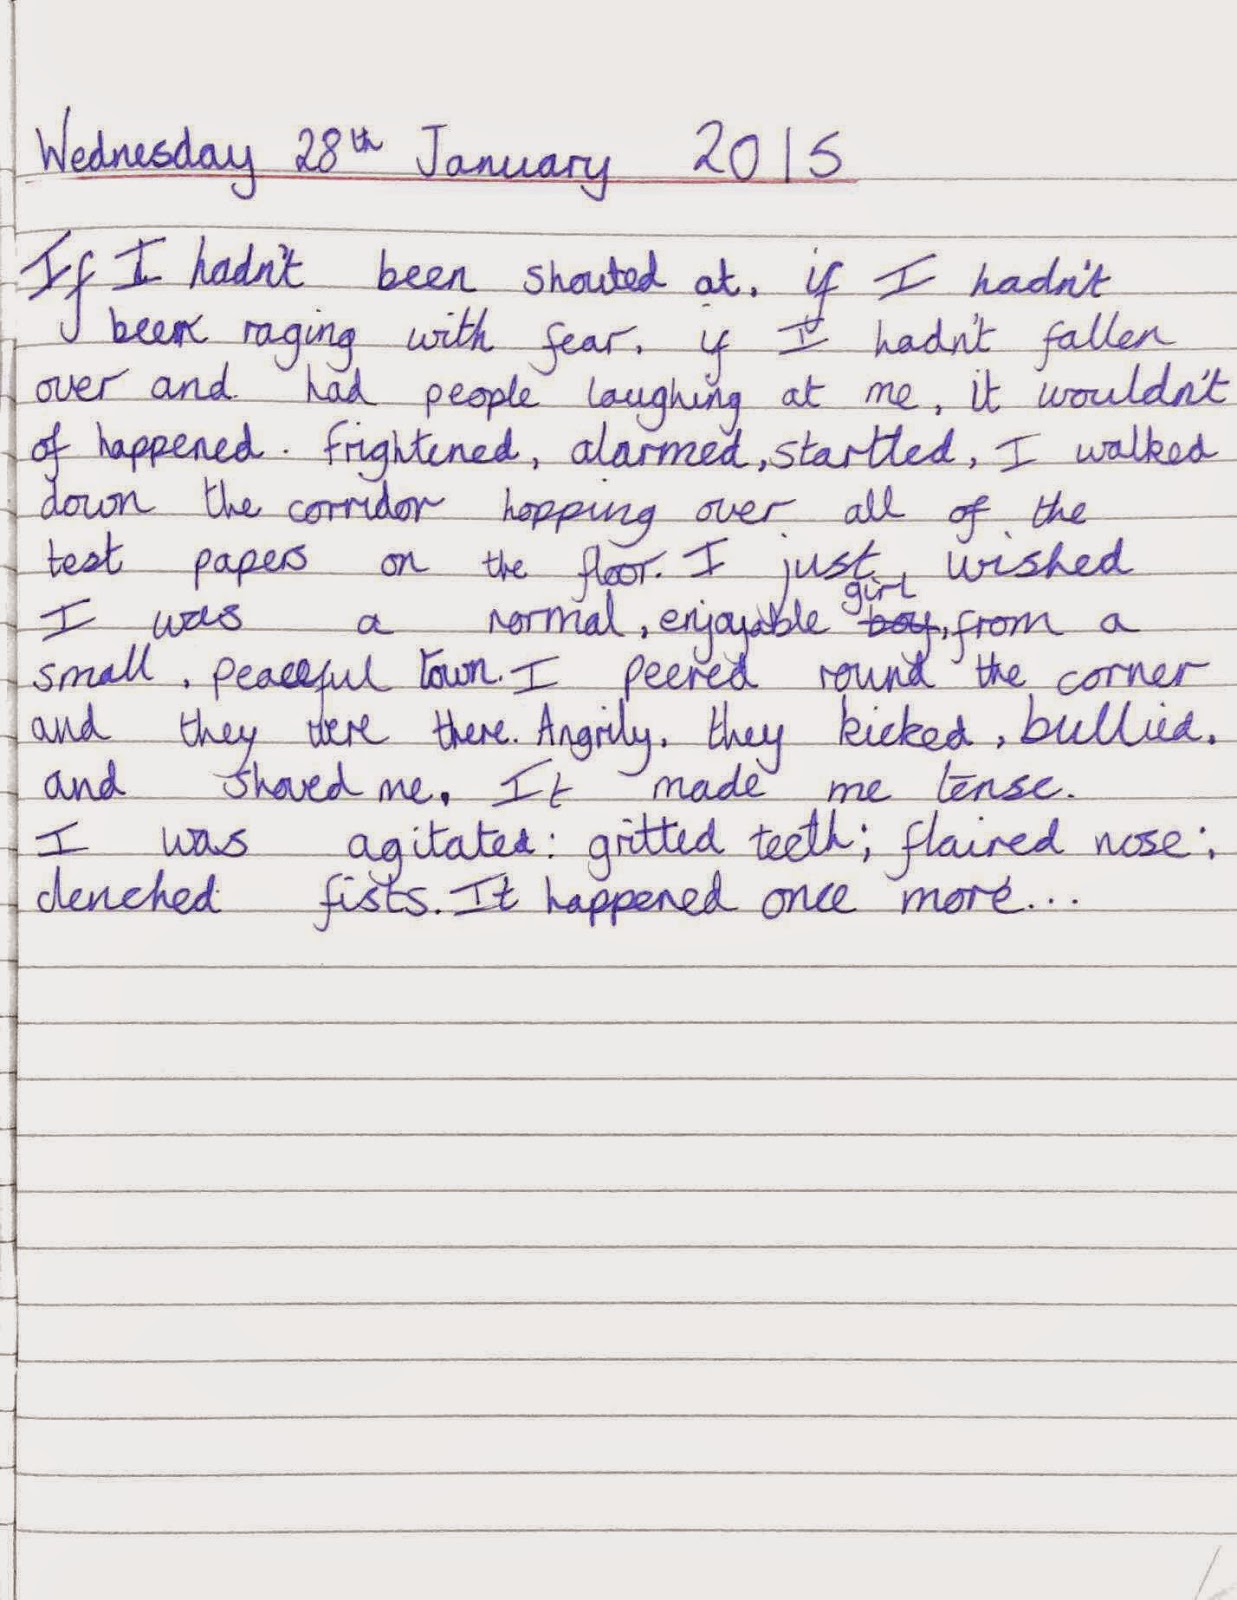 Wednesday 28th January 2015
If I hadn't been shouted at, if I hadn't
been raging with fear, if I hadn't fallen
over and had people laughing at me, it wouldn't
of happened. Frightened, alarmed, startled, I walked
down the corridor hopping over all of the
test papers on the floor. I just wished
I was a normal, enjoyable girl boy, from a
small, peaceful town. I peered round the corner
and they were there. Angrily, they kicked, bullied,
and shoved me. It made me tense.
I was agitated: gritted teeth; flaired nose;
clenched fists. It happened once more...